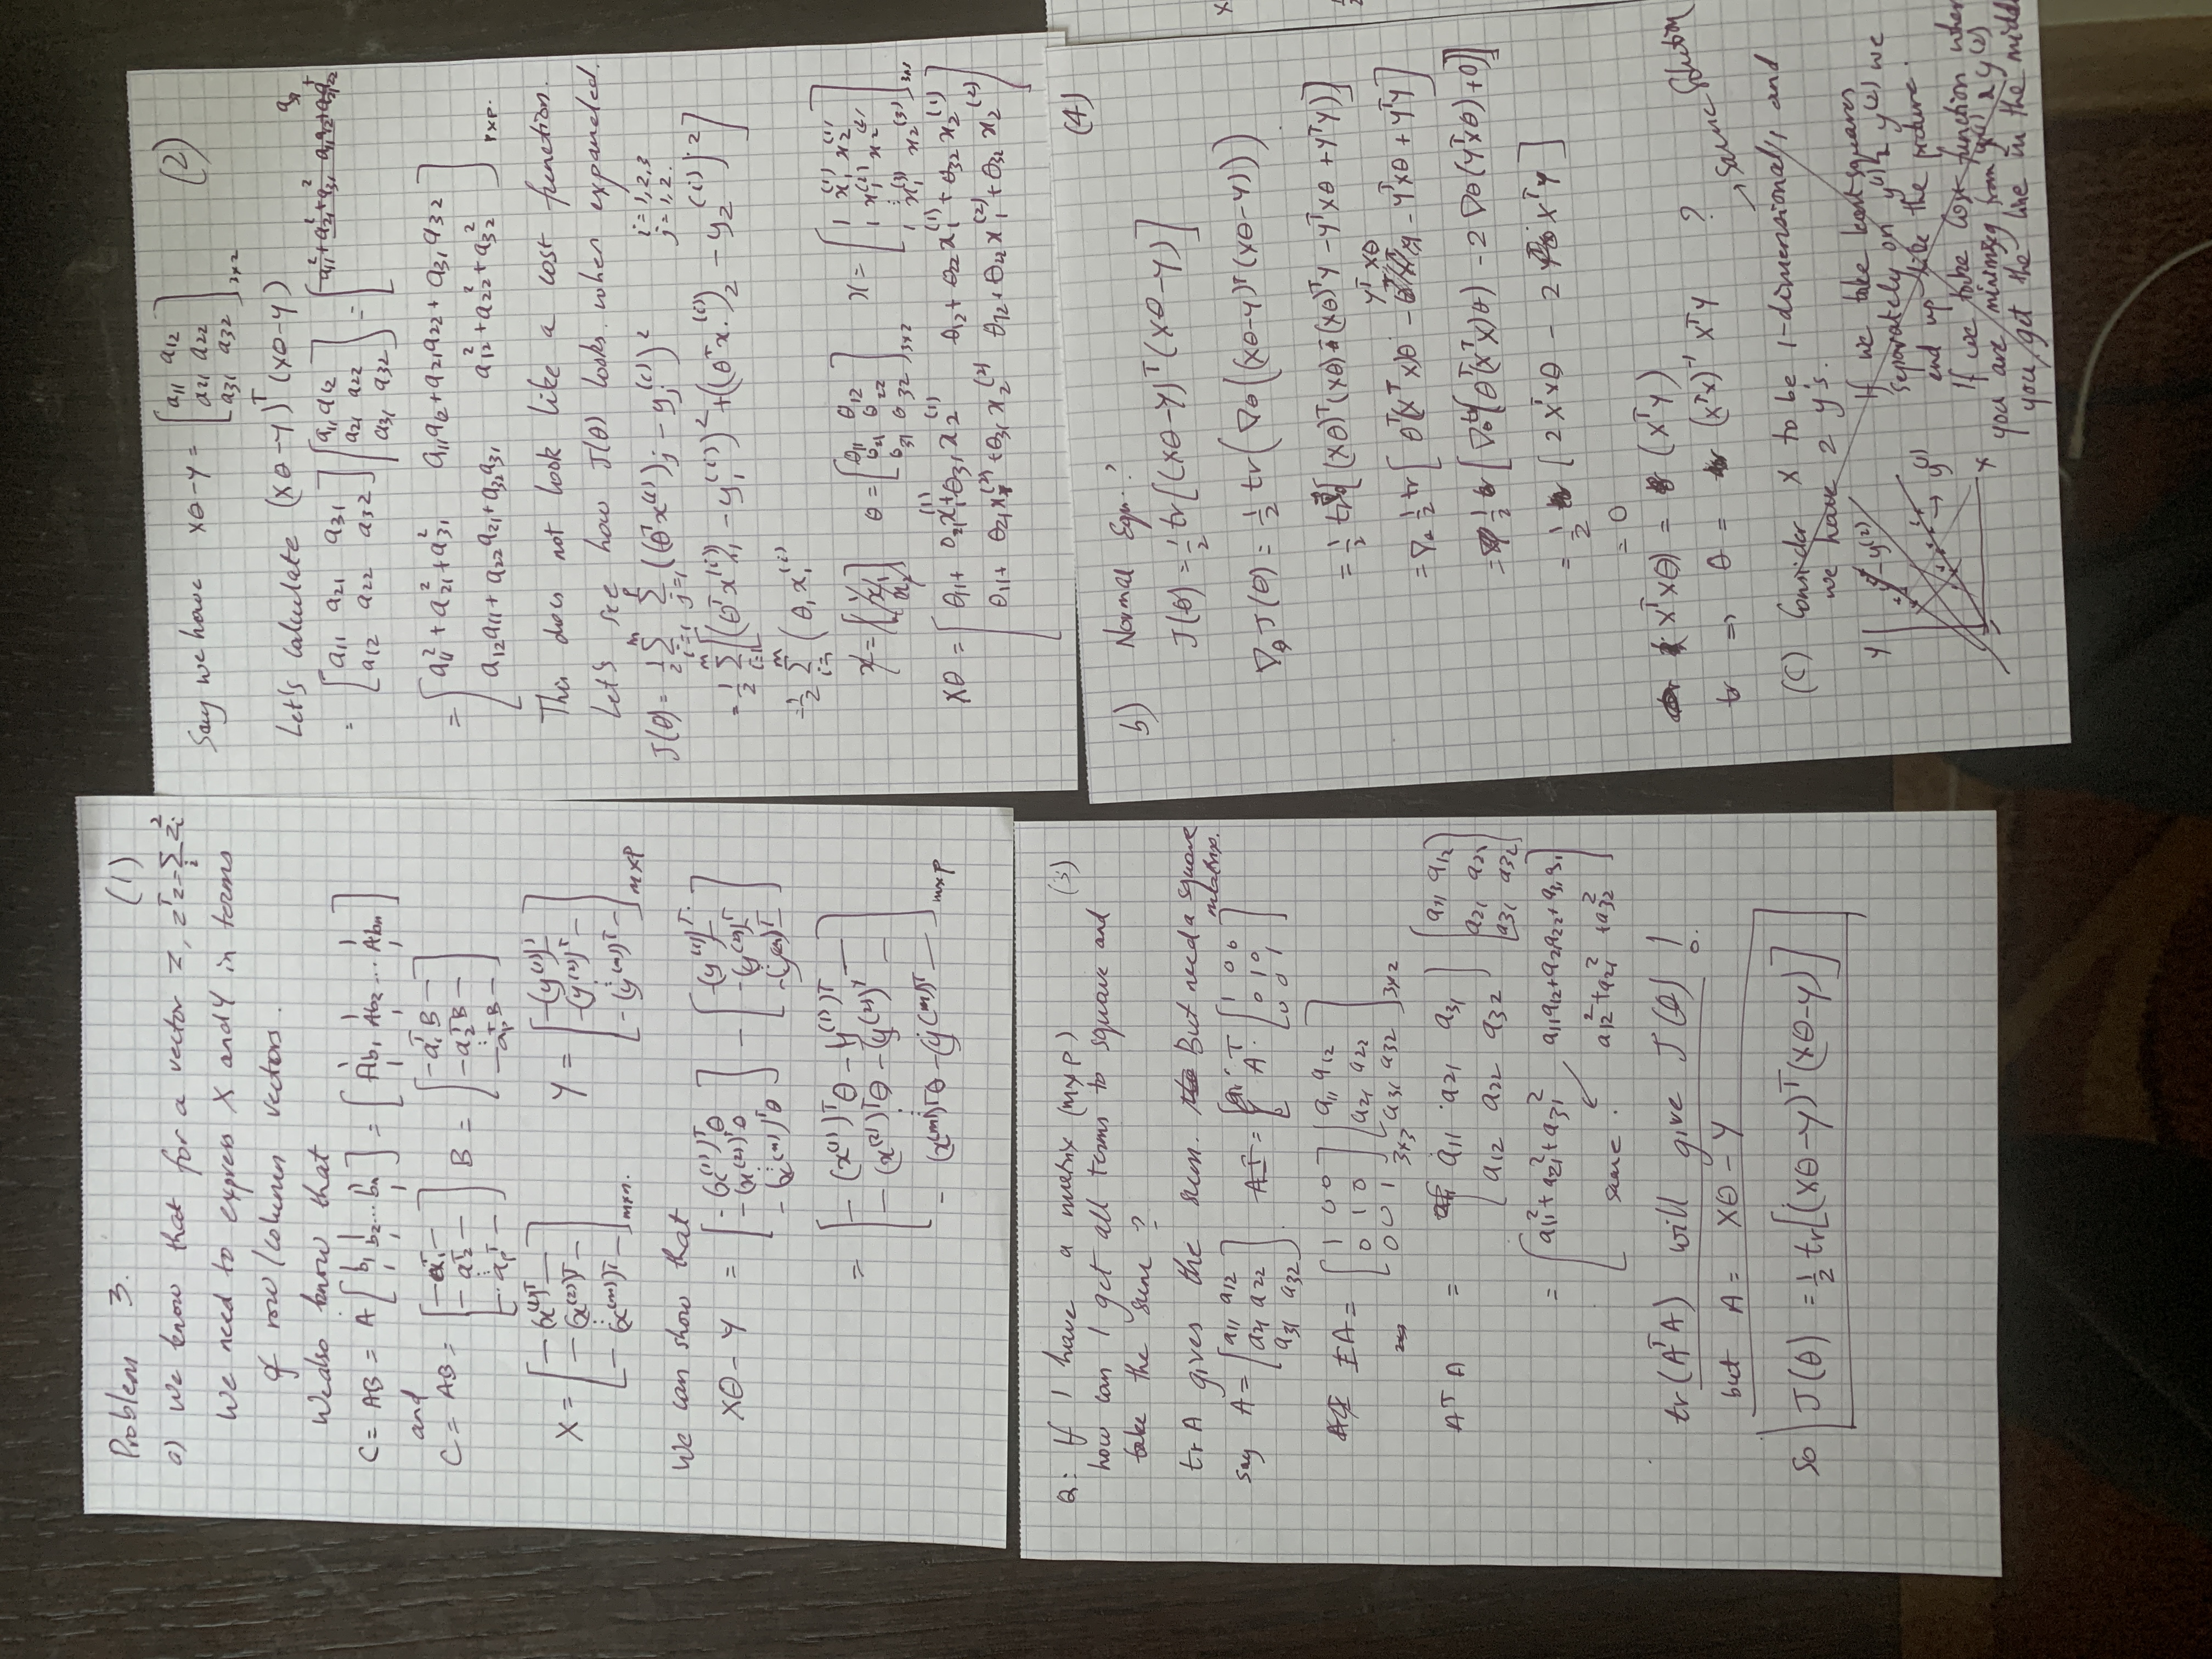 Problem 3. (1)
a) We know that for a vector z, zᵀz = Σᵢ zᵢ²
We need to express X and Y in terms
of row/column vectors.
We also know that
C = AB = A [b₁ b₂ ... bₙ] = [Ab₁ Ab₂ ... Abₙ]
and
C = AB = [—a₁ᵀ— —a₂ᵀ— ⋮ —aₚᵀ—] B = [—a₁ᵀB— —a₂ᵀB— ⋮ —aₚᵀB—]
X = [—(x⁽¹⁾)ᵀ— —(x⁽²⁾)ᵀ— ⋮ —(x⁽ᵐ⁾)ᵀ—] m×n. Y = [—(y⁽¹⁾)ᵀ— —(y⁽²⁾)ᵀ— ⋮ —(y⁽ᵐ⁾)ᵀ—] m×p
We can show that
Xθ – Y = [—(x⁽¹⁾)ᵀθ —(x⁽²⁾)ᵀθ ⋮ —(x⁽ᵐ⁾)ᵀθ] – [—(y⁽¹⁾)ᵀ— —(y⁽²⁾)ᵀ ⋮ —(y⁽ᵐ⁾)ᵀ—]
= [—(x⁽¹⁾)ᵀθ – y⁽¹⁾ᵀ— —(x⁽²⁾)ᵀθ – (y⁽²⁾)ᵀ— ⋮ —(x⁽ᵐ⁾)ᵀθ – (y⁽ᵐ⁾)ᵀ—] m×p
Say we have Xθ–Y = [a₁₁ a₁₂ a₂₁ a₂₂ a₃₁ a₃₂] (2)
Let's calculate (Xθ–Y)ᵀ(Xθ–Y)
= [a₁₁ a₂₁ a₃₁ a₁₂ a₂₂ a₃₂] [a₁₁ a₁₂ a₂₁ a₂₂ a₃₁ a₃₂] = [a₁₁²+a₂₁²+a₃₁² a₁₁a₁₂+a₂₁a₂₂
= [a₁₁² + a₂₁² + a₃₁² a₁₁a₁₂ + a₂₁a₂₂ + a₃₁a₃₂
a₁₂a₁₁ + a₂₂a₂₁ + a₃₂a₃₁ a₁₂² + a₂₂² + a₃₂²] p×p.
This does not look like a cost function.
Let's see how J(θ) looks when expanded.
J(θ) = ½ Σᵢ₌₁ᵐ Σⱼ₌₁ᵖ ((θᵀx⁽ⁱ⁾)ⱼ – yⱼ⁽ⁱ⁾)² i=1,2,3
j=1,2.
= ½ Σᵢ₌₁ᵐ [((θᵀx⁽ⁱ⁾)₁ – y₁⁽ⁱ⁾)² + ((θᵀx⁽ⁱ⁾)₂ – y₂⁽ⁱ⁾)²]
= ½ Σᵢ₌₁ᵐ (θ₁x₁⁽ⁱ⁾
x = [1 x₁ x₂] θ = [θ₁₁ θ₁₂ θ₂₁ θ₂₂ θ₃₁ θ₃₂] 3×2 x = [1 x₁⁽¹⁾ x₂⁽¹⁾ 1 x₁⁽²⁾ x₂⁽²⁾ ⋮ 1 x₁⁽³⁾ x₂⁽³⁾]
Xθ = [θ₁₁ + θ₂₁x₁⁽¹⁾+θ₃₁x₂⁽¹⁾ θ₁₂ + θ₂₂x₁⁽¹⁾ + θ₃₂x₂⁽¹⁾
θ₁₁ + θ₂₁x₁⁽²⁾ + θ₃₁x₂⁽²⁾ θ₁₂ + θ₂₂x₁⁽²⁾ + θ₃₂x₂⁽²⁾]
Q: If I have a matrix (m×p) (3)
how can I get all terms to square and
take the sum?
trA gives the sum. But need a square
matrix.
say A = [a₁₁ a₁₂ a₂₁ a₂₂ a₃₁ a₃₂] AI = [A. [1 0 0 0 1 0 0 0 1]
IA = [1 0 0 0 1 0 0 0 1] 3×3 [a₁₁ a₁₂ a₂₁ a₂₂ a₃₁ a₃₂] 3×2
AᵀA = [a₁₁ a₂₁ a₃₁ a₁₂ a₂₂ a₃₂] [a₁₁ a₁₂ a₂₁ a₂₂ a₃₁ a₃₂]
= [a₁₁² + a₂₁² + a₃₁² a₁₁a₁₂+a₂₁a₂₂+a₃₁a₃₁
same. a₁₂²+a₂₂² +a₃₂²]
tr(AᵀA) will give J(θ)!
but A = Xθ – Y
So J(θ) = ½ tr[(Xθ–Y)ᵀ(Xθ–Y)]
(4)
b) Normal Eqn.?
J(θ) = ½ tr[(Xθ–Y)ᵀ(Xθ–Y)]
∇θ J(θ) = ½ tr(∇θ((Xθ–Y)ᵀ(Xθ–Y)))
= ½ tr∇θ[(Xθ)ᵀ(Xθ) – (Xθ)ᵀY – YᵀXθ + YᵀY)]
YᵀXθ
= ∇θ ½ tr[θᵀ(XᵀX)θ – – YᵀXθ + YᵀY]
= ½ [∇θ tr(θᵀ(XᵀX)θ) – 2∇θ(YᵀXθ) + 0)]
= ½ [2XᵀXθ – 2 XᵀY]
= 0
XᵀXθ) = (XᵀY)
tr ⇒ θ = (XᵀX)⁻¹ XᵀY ?
→ Same Solution
(C) Consider X to be 1-dimensional, and
we have 2 y's.
Y y⁽²⁾ → y⁽¹⁾ X
If we take least squares
separately on y⁽¹⁾ & y⁽²⁾ we
end up like the picture.
If we take Cost function wher
you are minimizg from y⁽¹⁾ & y⁽²⁾
you get the line in the midd